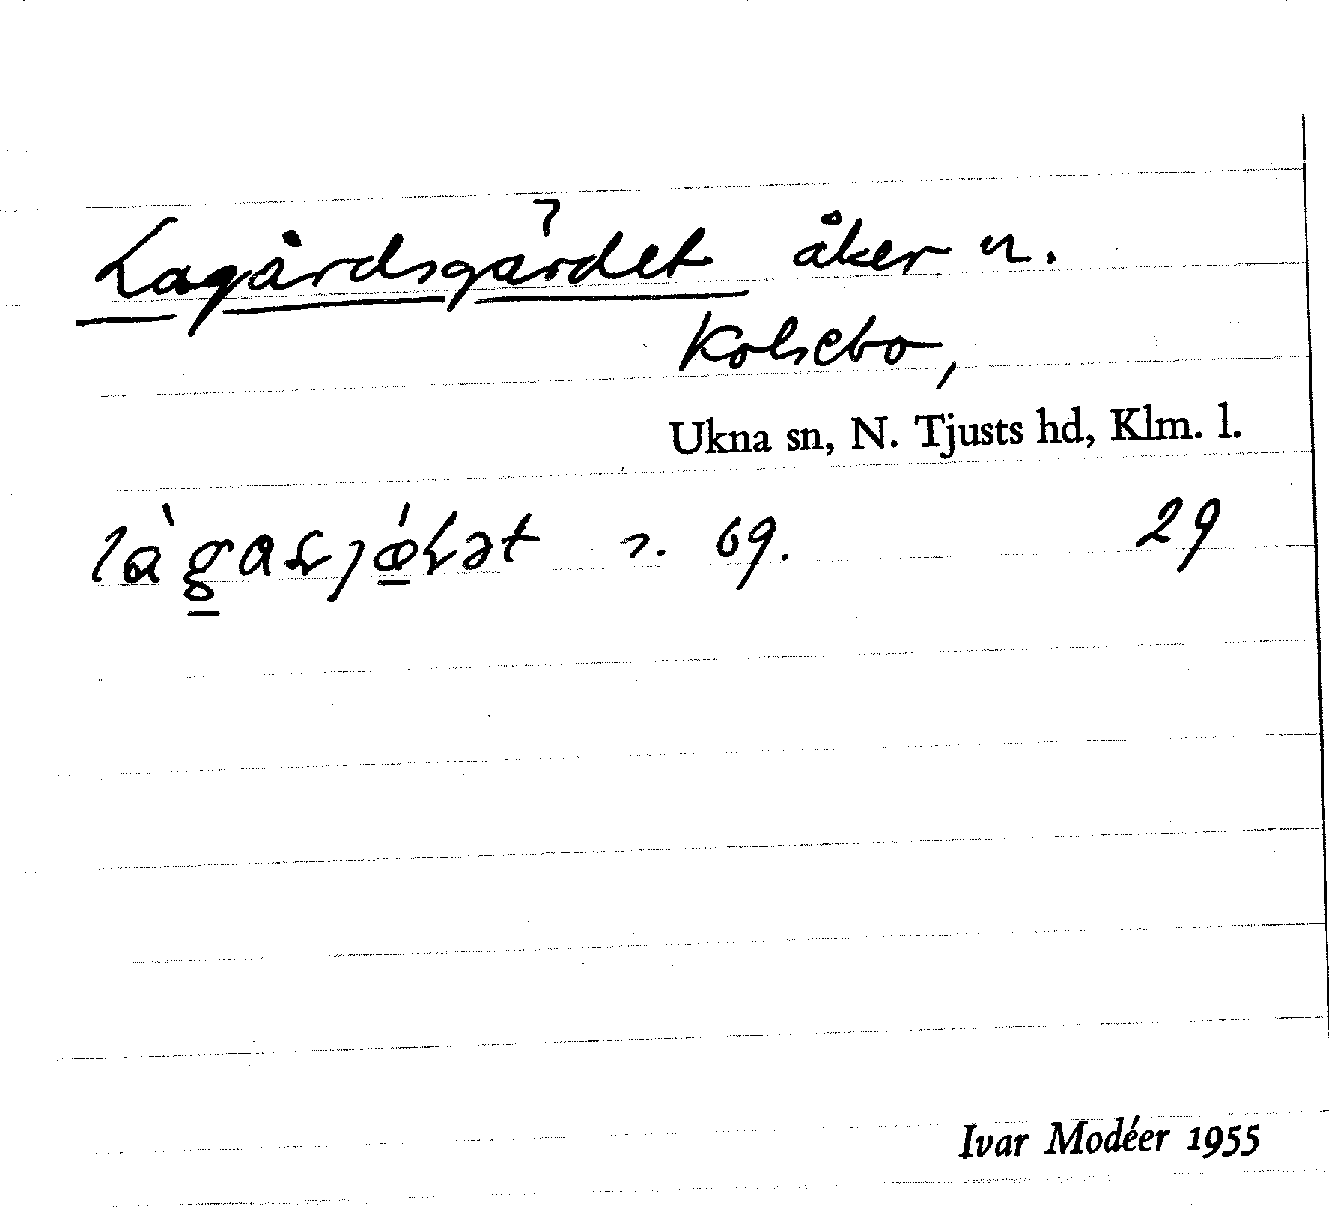 Lagårdsgärdet åker n.
Kolsebo,
Ukna sn, N. Tjusts hd, Klm. l.
69. 29
Ivar Modéer 1955